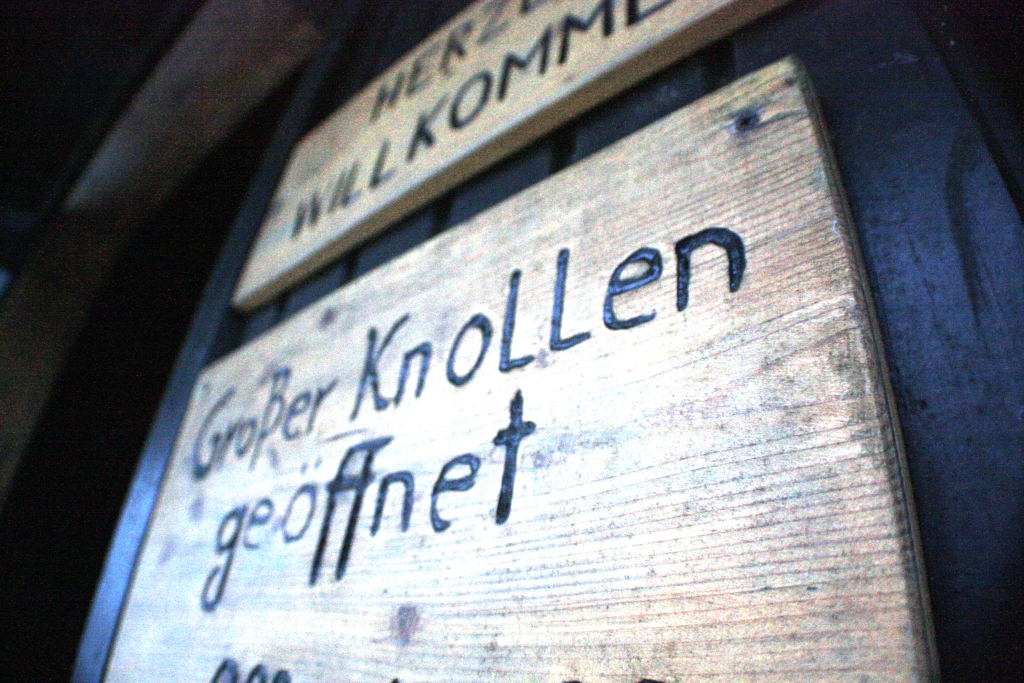 HERZE
WILLKOMME
Großer Knollen
geöffnet